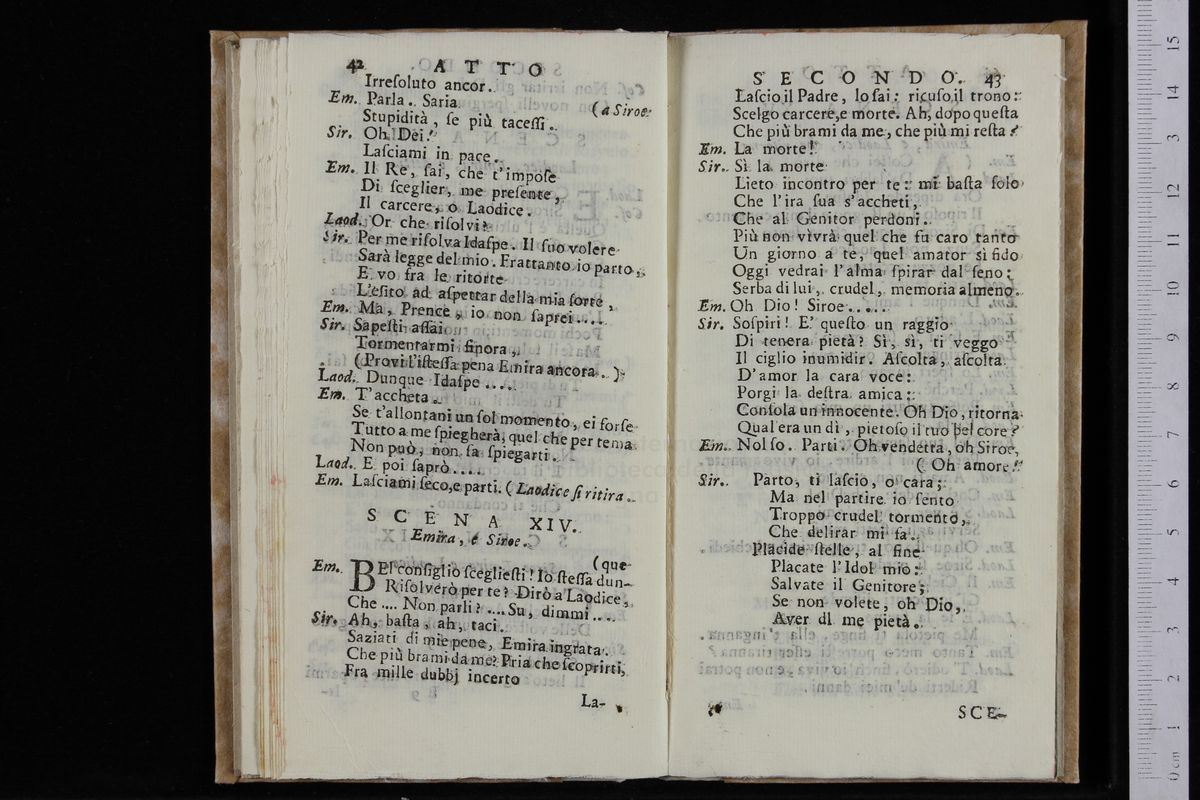 42 ATTO
Irresoluto ancor.
Em. Parla. Saria (a Siroe
Stupidità, se più tacessi.
Sir. Oh Dei!
Lasciami in pace.
Em. Il Re, sai, che t'impose
Di sceglier, me presente,
Il carcere, o Laodice.
Laod. Or che risolvi?
Sir. Per me risolva Idaspe. Il suo volere
Sarà legge del mio. Frattanto io parto,
E vo fra le ritorte
L'esito ad aspettar della mia sorte,
Em. Ma, Prence, io non saprei....
Sir. Sapesti assai
Tormentarmi finora,
(Provi l'istessa pena Emira ancora.)
Laod. Dunque Idaspe.....
Em. T'accheta.
Se t'allontani un sol momento, ei forse
Tutto a me spiegherà, quel che per tema
Non può, non sa spiegarti.
Laod. E poi saprò.....
Em. Lasciami seco, e parti. (Laodice si ritira.
SCENA XIV.
Emira, e Siroe.
(que-
Em. BEl consiglio scegliesti! Io stessa dun-
Risolverò per te? Dirò a Laodice,
Che.... Non parli?....Su, dimmi....
Sir. Ah, basta, ah, taci.
Saziati di mie pene, Emira ingrata.
Che più brami da me? Pria che scoprirti,
Fra mille dubbj incerto
La-
SECONDO. 43
Lascio il Padre, lo sai: ricuso il trono:
Scelgo carcere, e morte. Ah, dopo questa
Che più brami da me, che più mi resta?
Em. La morte!
Sir. Sì la morte
Lieto incontro per te: mi basta solo
Che l'ira sua s'accheti,
Che al Genitor perdoni.
Più non vivrà quel che fu caro tanto
Un giorno a te, quel amator sì fido
Oggi vedrai l'alma spirar dal seno;
Serba di lui, crudel, memoria almeno.
Em. Oh Dio! Siroe.....
Sir. Sospiri! E' questo un raggio
Di tenera pietà? Sì, sì, ti veggo
Il ciglio inumidir. Ascolta, ascolta
D'amor la cara voce:
Porgi la destra amica:
Consola un innocente. Oh Dio, ritorna
Qual era un dì, pietoso il tuo bel core?
Em. Nol so. Parti. Oh vendetta, oh Siroe,
(Oh amore!
Sir. Parto, ti lascio, o cara;
Ma nel partire io sento
Troppo crudel tormento,
Che delirar mi fa.
Placide stelle, al fine
Placate l'Idol mio:
Salvate il Genitore;
Se non volete, oh Dio,
Aver di me pietà.
SCE-